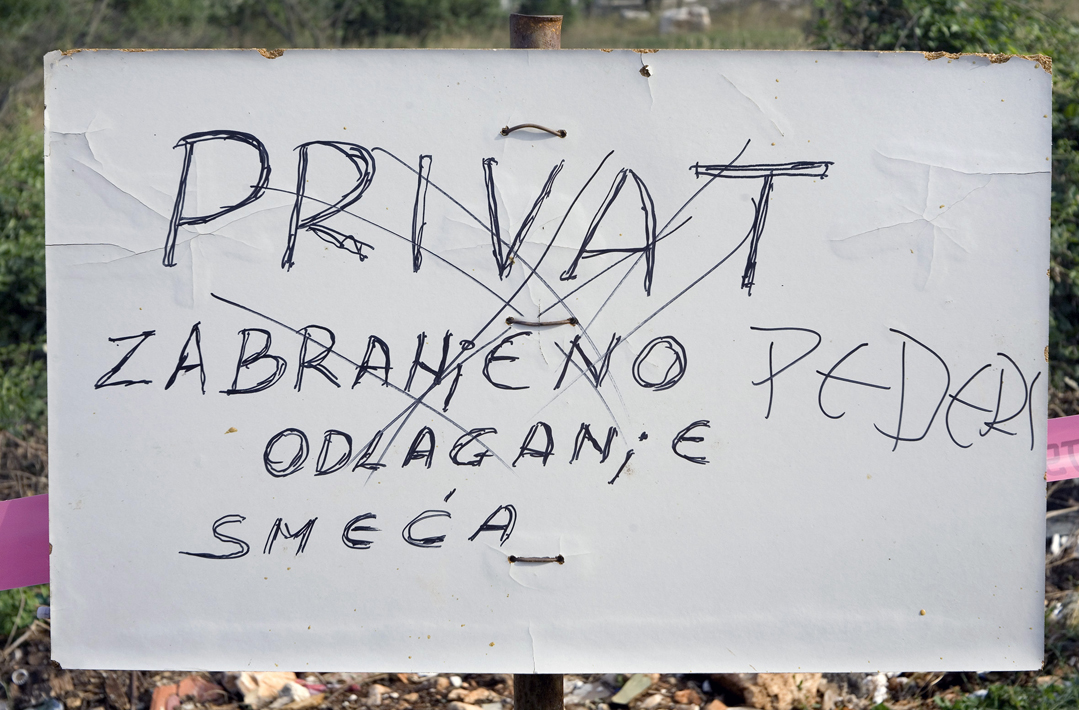 PRIVAT
ZABRANjENO PEDERI
ODLAGANjE
SMEĆA